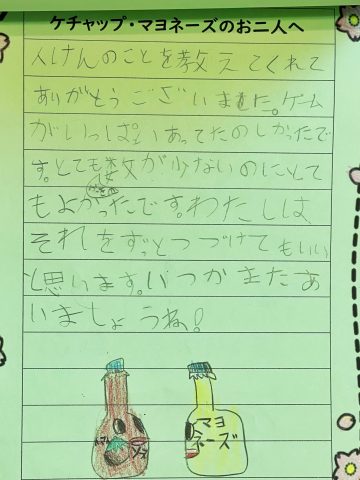 ケチャップ・マヨネーズのお二人へ
人けんのことを教えてくれて
ありがとうございました。ゲーム
がいっぱいあってたのしかったで
す。とても数が少ないのにとて
もよかったです。わたしは
それをずっとつづけてもいい
と思います。いつかまたあ
いましょうね!
マヨ
ネーズ